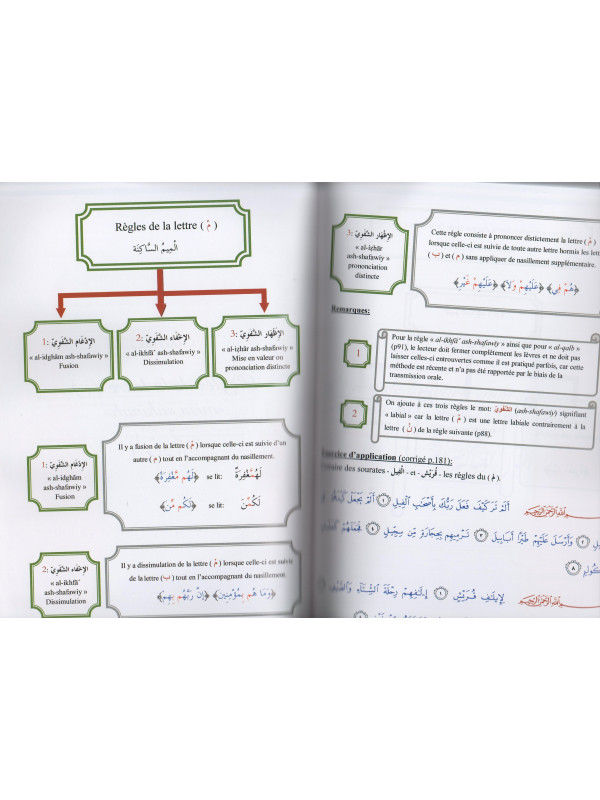 Règles de la lettre ( مْ )
الْمِيمُ السَّاكِنَة
1: الإِدْغَام الشَّفَوِيّ
« al-idghâm ash-shafawiy »
Fusion
2: الإِخْفَاء الشَّفَوِيّ
« al-ikhfâ’ ash-shafawiy »
Dissimulation
3: الإِظْهَار الشَّفَوِيّ
« al-iẓhâr ash-shafawiy »
Mise en valeur ou
prononciation distincte
1: الإِدْغَام الشَّفَوِيّ
« al-idghâm
ash-shafawiy »
Fusion
Il y a fusion de la lettre ( مْ ) lorsque celle-ci est suivie d’un
autre ( م ) tout en l’accompagnant du nasillement.
﴿لَهُم مَّغْفِرَةٌ﴾ se lit: لَهُمَّغْفِرَةٌ
﴿لَكُم مِّن﴾ se lit: لَكُمِّنَ
2: الإِخْفَاء الشَّفَوِيّ
« al-ikhfâ’
ash-shafawiy »
Dissimulation
Il y a dissimulation de la lettre ( مْ ) lorsque celle-ci est suivie
de la lettre (ب) tout en l’accompagnant du nasillement.
﴿وَمَا هُم بِمُؤْمِنِينَ﴾ ﴿إِنَّ رَبَّهُم بِهِمْ﴾
3: الإِظْهَار الشَّفَوِيّ
« al-iẓhâr
ash-shafawiy »
prononciation
distincte
Cette règle consiste à prononcer distictement la lettre ( مْ )
lorsque celle-ci est suivie de toute autre lettre hormis les
(ب) et ( م ) sans appliquer de nasillement supplémentaire.
﴿هُمْ فِي﴾ ﴿عَلَيْهِمْ وَلَا﴾ ﴿عَلَيْهِمْ غَيْرِ﴾
Remarques:
1
Pour la règle « al-ikhfâ’ ash-shafawiy » ainsi que pour « al-qalb »
(p91), le lecteur doit fermer complètement les lèvres et ne doit pas
laisser celles-ci entrouvertes comme il est pratiqué parfois, car cette
méthode est récente et n’a pas été rapportée par le biais de la
transmission orale.
2
On ajoute à ces trois règles le mot: الشَّفَوِيّ (ash-shafawiy) signifiant
« labial » car la lettre ( مْ ) est une lettre labiale contrairement à la
lettre ( نْ ) de la règle suivante (p88).
d’application (corrigé p.181):
des sourates - الْفِيل - et - قُرَيْش - les règles du ( مْ ).
بِسْمِ اللَّهِ الرَّحْمَٰنِ الرَّحِيمِ أَلَمْ تَرَ كَيْفَ فَعَلَ رَبُّكَ بِأَصْحَابِ الْفِيلِ ١ أَلَمْ يَجْعَلْ
٢ وَأَرْسَلَ عَلَيْهِمْ طَيْرًا أَبَابِيلَ ٣ تَرْمِيهِم بِحِجَارَةٍ مِّن سِجِّيلٍ ٤ فَجَعَلَهُمْ
بِسْمِ اللَّهِ الرَّحْمَٰنِ الرَّحِيمِ لِإِيلَافِ قُرَيْشٍ ١ إِيلَافِهِمْ رِحْلَةَ الشِّتَاءِ وَالصَّيْفِ